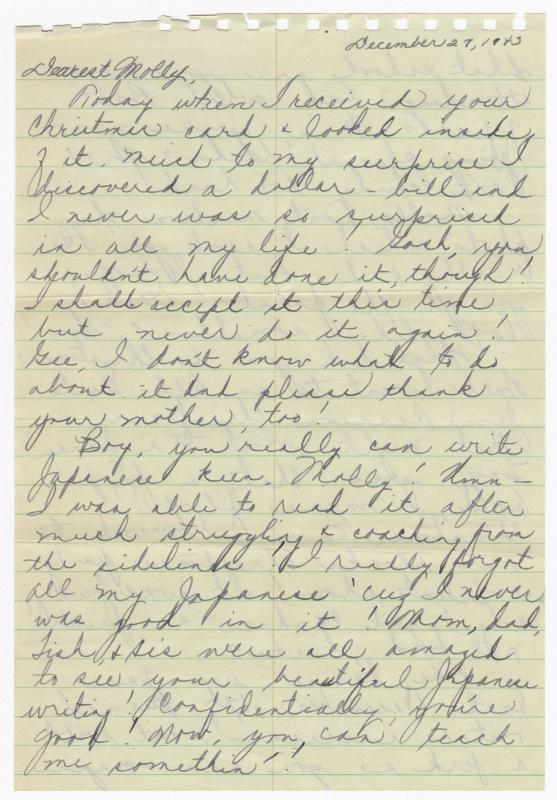 December 27, 1943
Dearest Molly,
Today when I received your
Christmas card & looked inside
of it, much to my surprise I
discovered a dollar - bill and
I never was so surprised
in all my life! Gosh, you
shouldn't have done it, though!
I shall accept it this time
but never do it again!
Gee, I don't know what to do
about it and please thank
your mother, too!
Boy, you really can write
Japanese keen, Molly! Umn -
I was able to read it after
much struggling & coaching from
the sidelines! I really forgot
all my Japanese 'cuz I never
was good in it! Mom, Dad,
Tish, & Sis were all amazed
to see your beautiful Japanese
writing! Confidentially, you're
good! Now, you, can teach
me somethin'!